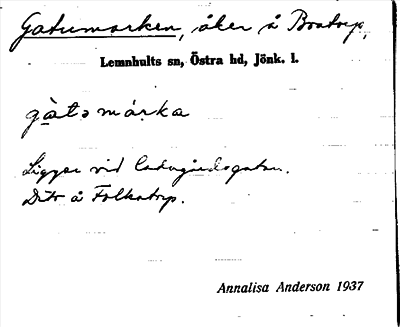 Gatumarken, åker å Boatorp,
Lemnhults sn, Östra hd, Jönk. l.
gàtəmárka
Ligger vid ladugårdsgatan.
Dito å Folkatorp.
Annalisa Anderson 1937